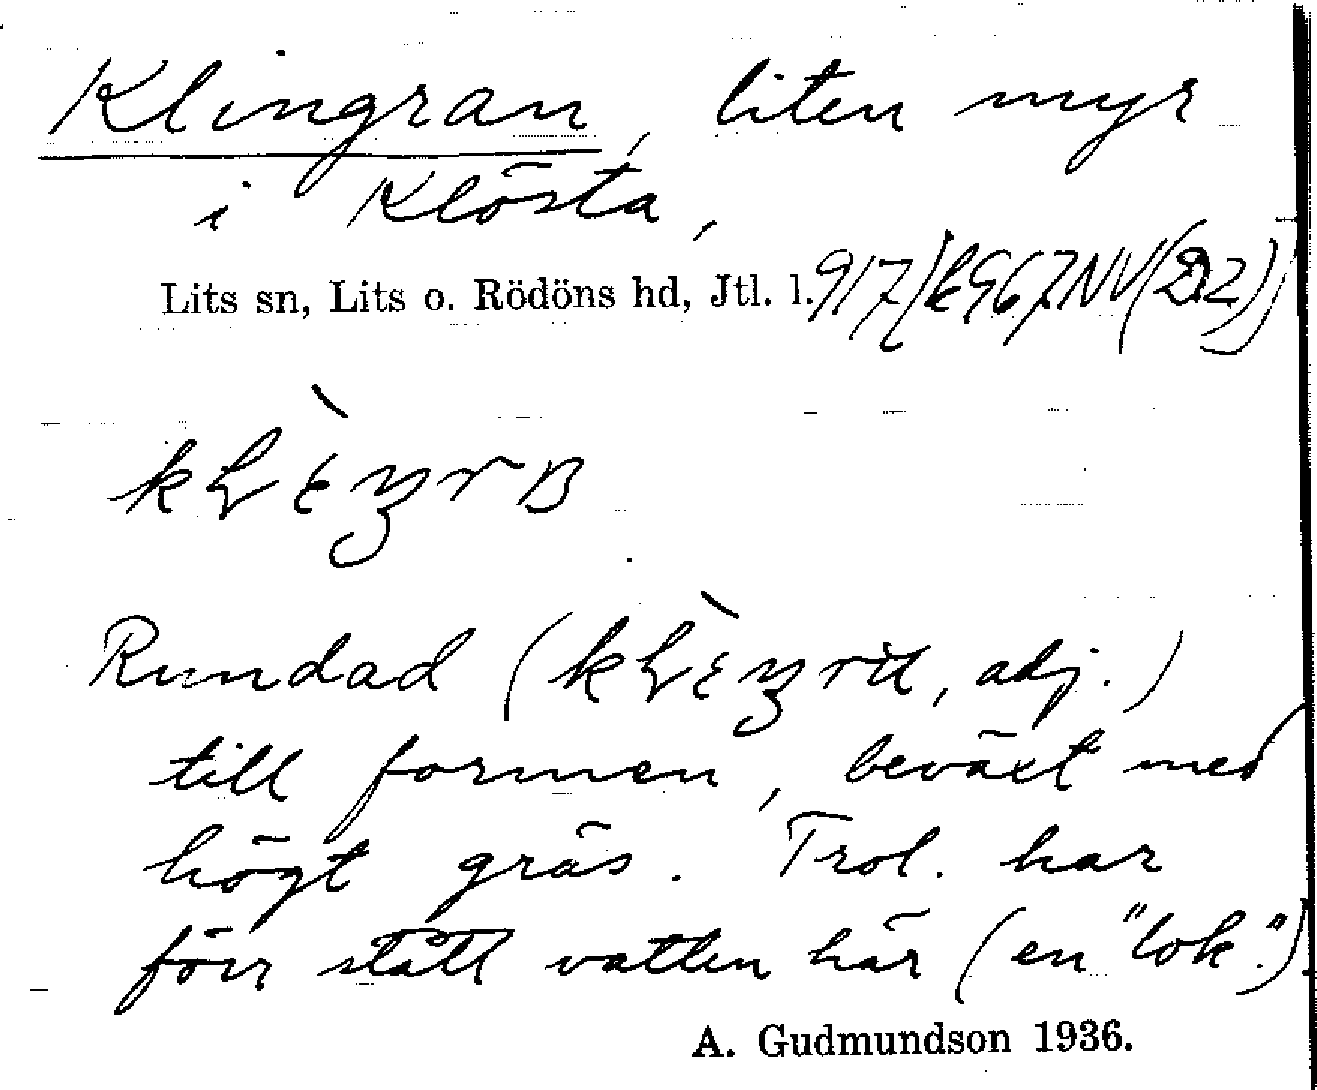 Klingran, liten myr
i Klösta,
Lits sn, Lits o. Rödöns hd, Jtl. l.
Rundad (adj.)
till formen, beväxt med
högt gräs. Trol. har
förr stått vatten här (en "lok".)
A. Gudmundson 1936.